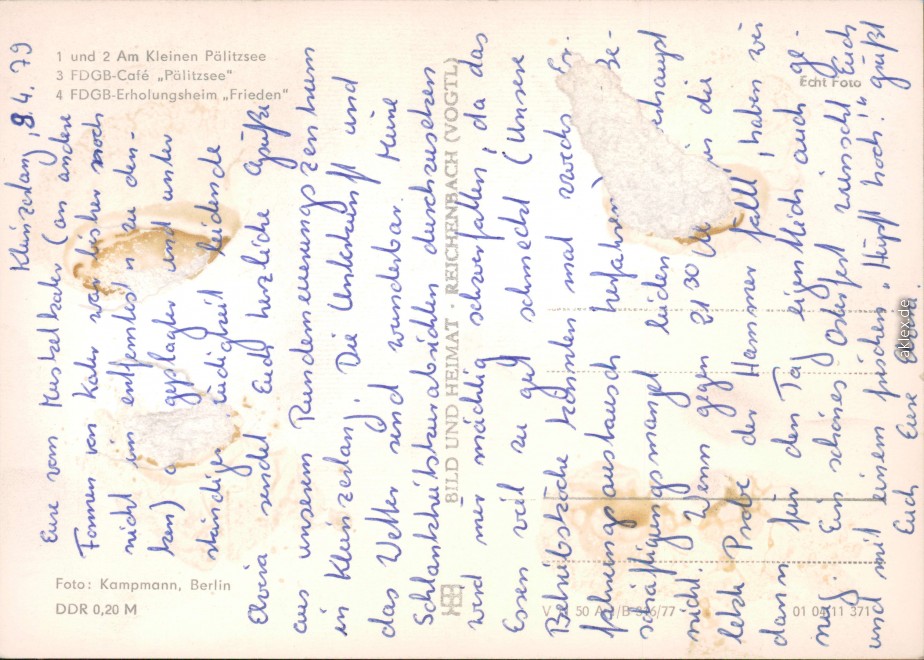 1 und 2 Am Kleinen Pälitzsee
3 FDGB-Café „Pälitzsee"
4 FDGB-Erholungsheim „Frieden"
Echt Foto
Kleinzerlang, 8.4.79
Eure von Muskelkater (an andere
Formen von Kater war bisher noch
nicht im entferntesten zu den-
ken) geplagte und unter
ständiger Müdigkeit leidende
Elvira sendet Euch herzliche Grüße
aus unserem Rundumerneuerungszentrum
in Kleinzerlang. Die Unterkunft und
das Wetter sind wunderbar. Meine
Schlankheitskurabsichten durchzusetzen
wird mir mächtig schwerfallen, da das
Essen viel zu gut schmeckt (Unsere
Betriebsköche könnten mal was der Er-
fahrungsaustausch herfahren). Be-
schäftigungsmangel leiden wir überhaupt
nicht. Wenn gegen 21 30 Uhr in die
letzte Probe der Hammer fällt, haben wir
dann für den Tag eigentlich auch ge-
nug. Ein schönes Osterfest wünscht Euch
und mit einem frischen „Hüpf hoch!" grüßt
Euch Eure
BILD UND HEIMAT · REICHENBACH (VOGTL)
Foto: Kampmann, Berlin
DDR 0,20 M
V 11 50 A 1/B 316/77
01 04 11 371
aklex.de